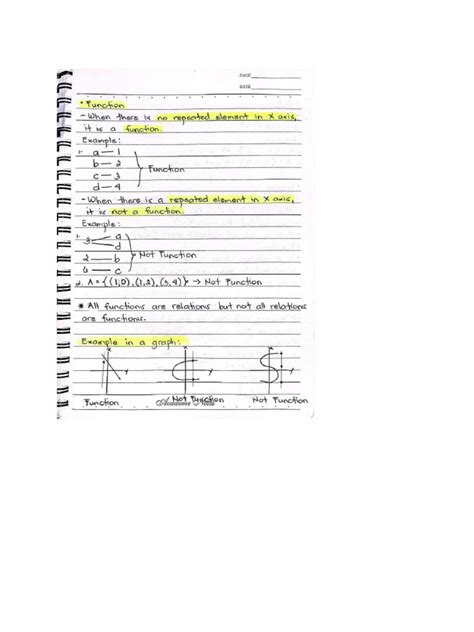 PAGE
DATE
• Function
- When there is no repeated element in X axis,
it is a function.
Example:
1. a — 1
b — 2
c — 3
d — 4
Function
- When there is a repeated element in X axis,
it is not a function.
Example:
1. 3 a
d
2 — b
c
Not Function
2. A = {(1,0), (1,2), (3,4)} → Not Function
* All functions are relations but not all relations
are functions.
Example in a graph:
x x x
y y y
Function Not Function Not Function